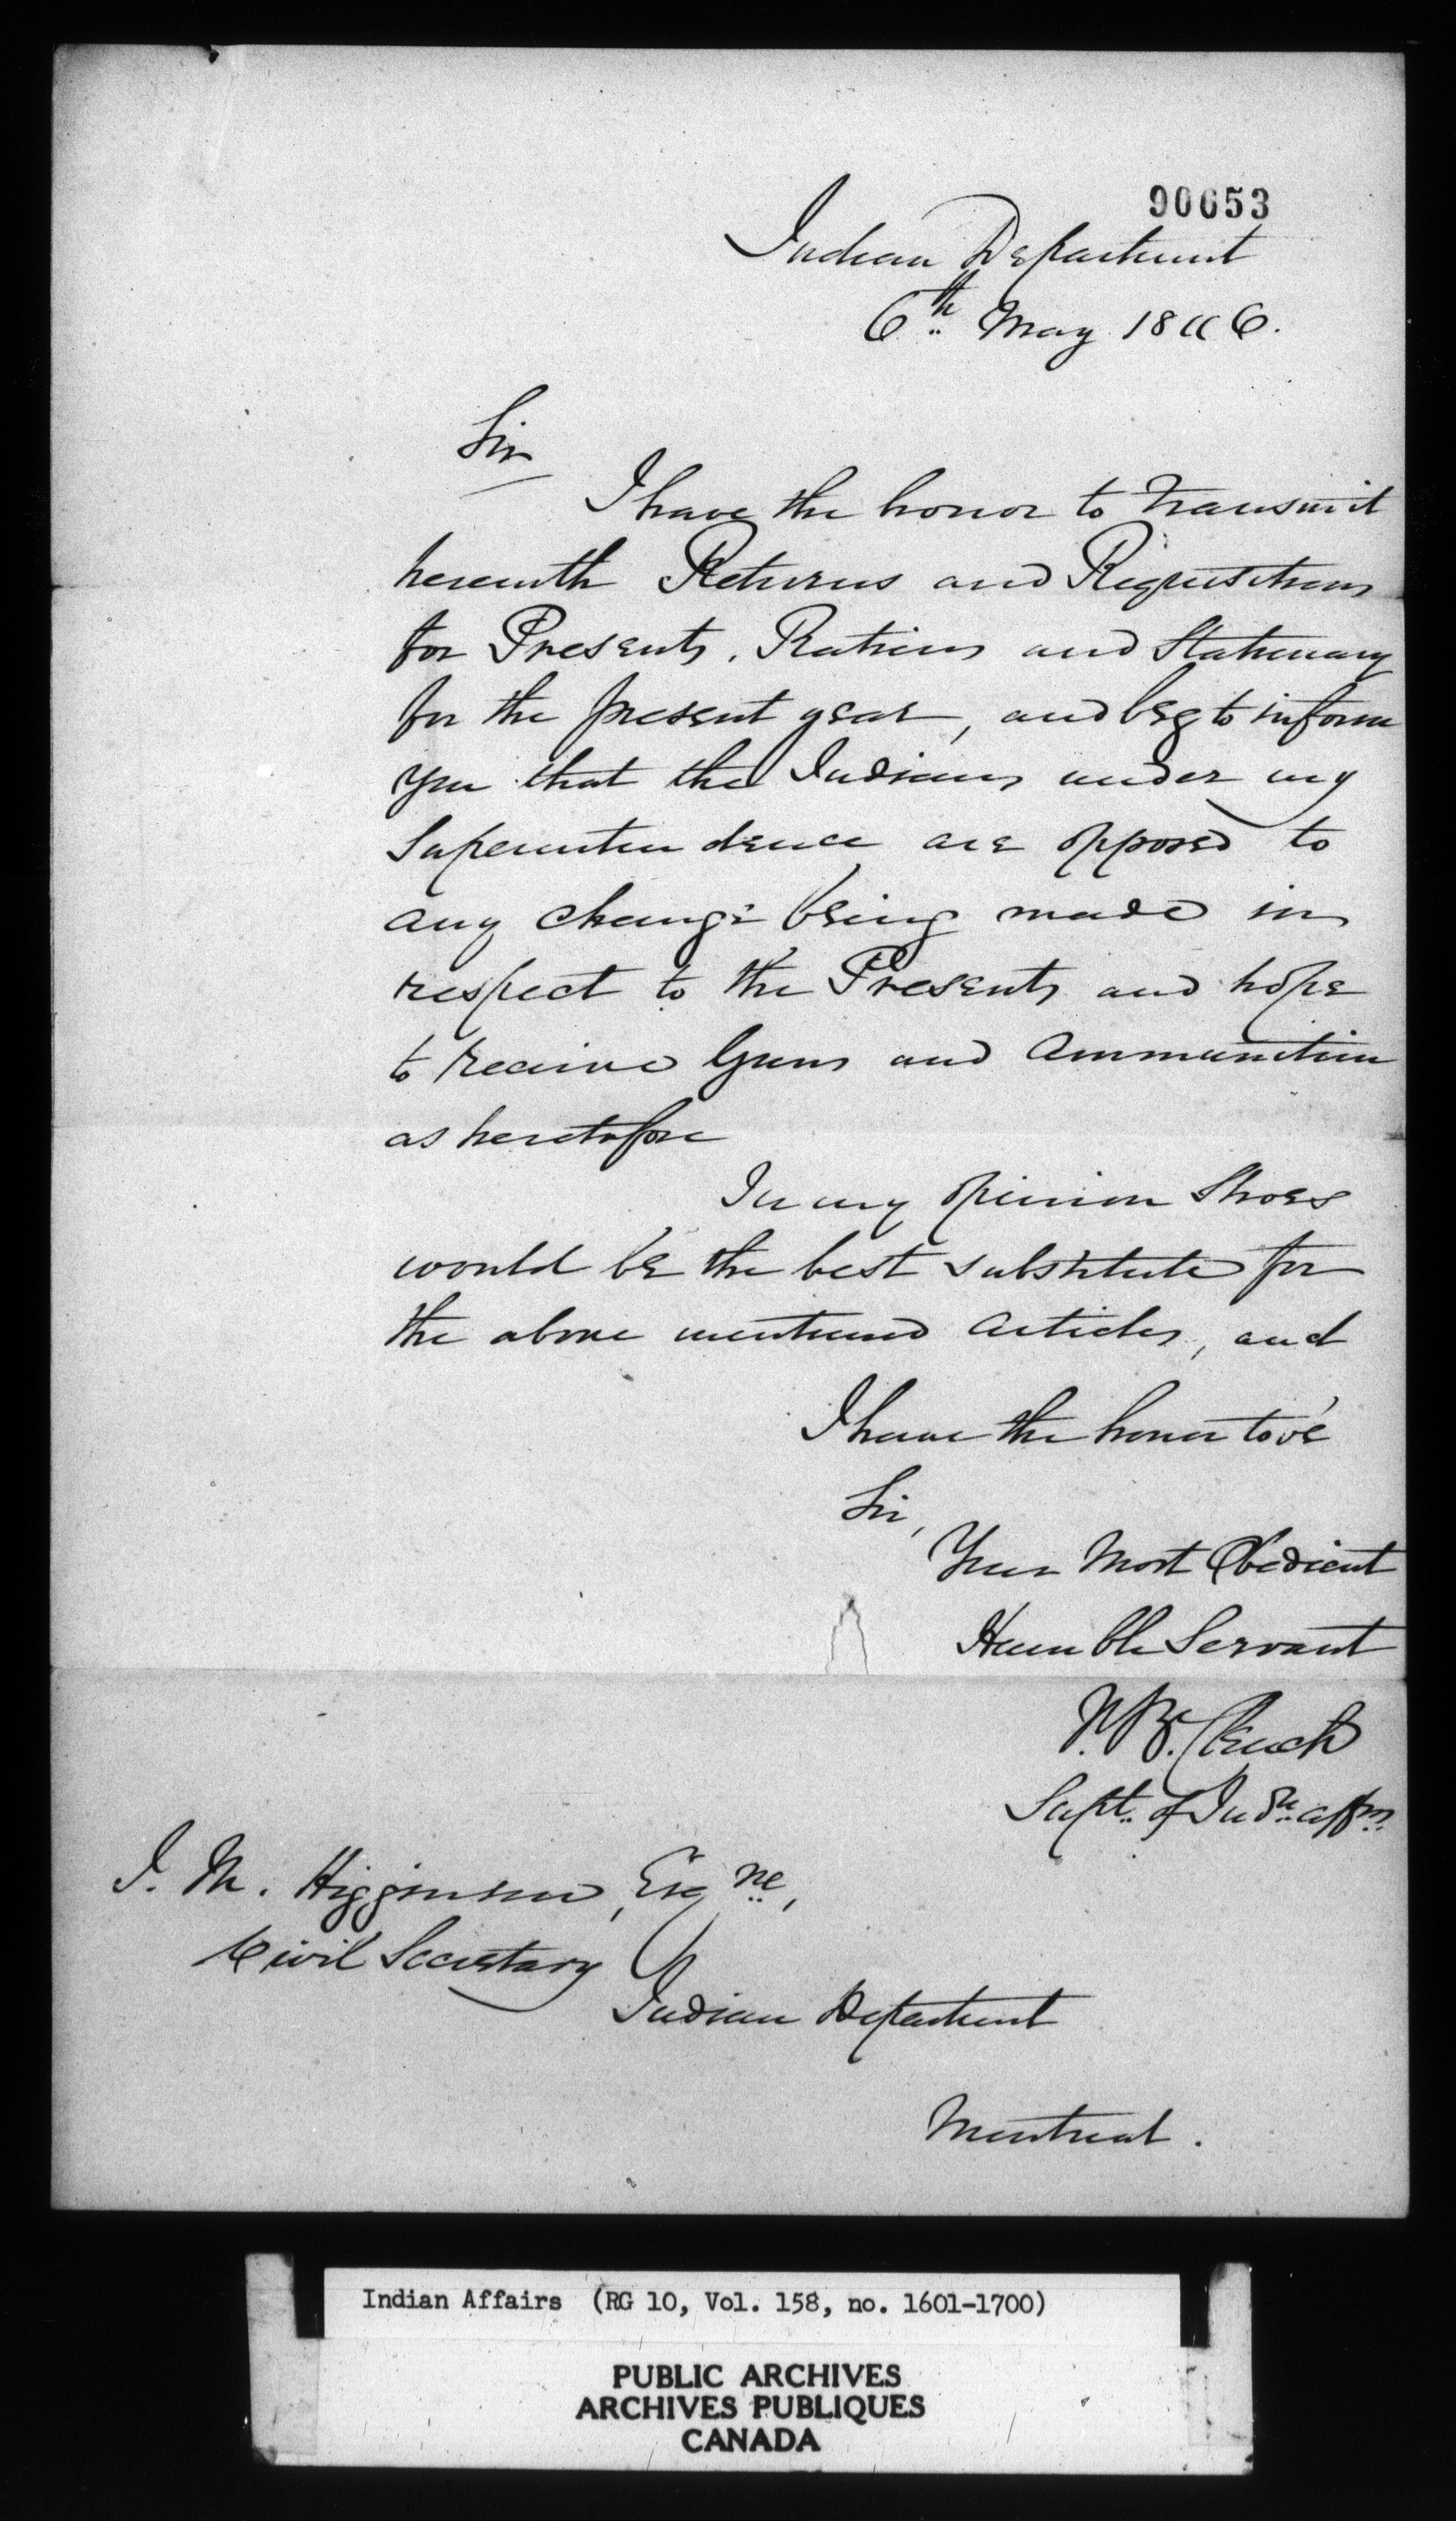 90653
Indian Department
6th May 1846.
Sir
I have the honor to transmit
herewith Returns and Requisitions
for Presents, Rations and Stationary
for the present year, and beg to inform
you that the Indians under my
Superintendence are opposed to
any change being made in
respect to the Presents and hope
to receive Guns and Ammunition
as heretofore
In my opinion Shoes
would be the best substitute for
the above mentioned articles, and
I have the honor to be
Sir,
Your Most Obedient
Humble Servant
J.B. Clench
Supt. of Indn. affrs.
J. M. Higginson, Esqre,
Civil Secretary
Indian Department
Montreal.
Indian Affairs (RG 10, Vol. 158, no. 1601-1700)
PUBLIC ARCHIVES
ARCHIVES PUBLIQUES
CANADA